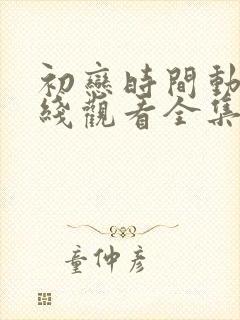 初戀時間動
綫觀看全集
童仲彥